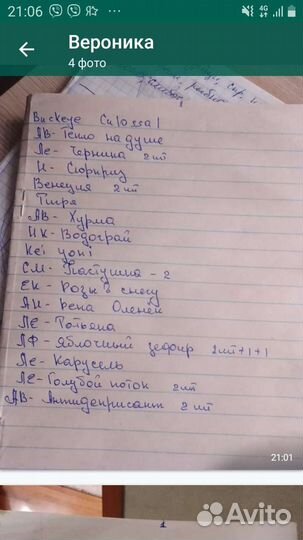 21:06
4G
57%
Вероника
4 фото
Buckeye Colossal
АВ-Тепло на душе
Ле-Черника 2 шт
Н-Сюрприз
Венеция 2 шт
Тигра
АВ-Хурма
НК-Водограй
Kei yoni
СМ-Пастушка-2
ЕК-Розы в снегу
АН-Рена Оленей
ЛЕ-Татьяна
ЛФ-Яблочный зефир 2шт+1+1
Ле-Карусель
ЛЕ-Голубой поток 2шт
АВ-Антидеприсант 2шт
21:01
1
Avito